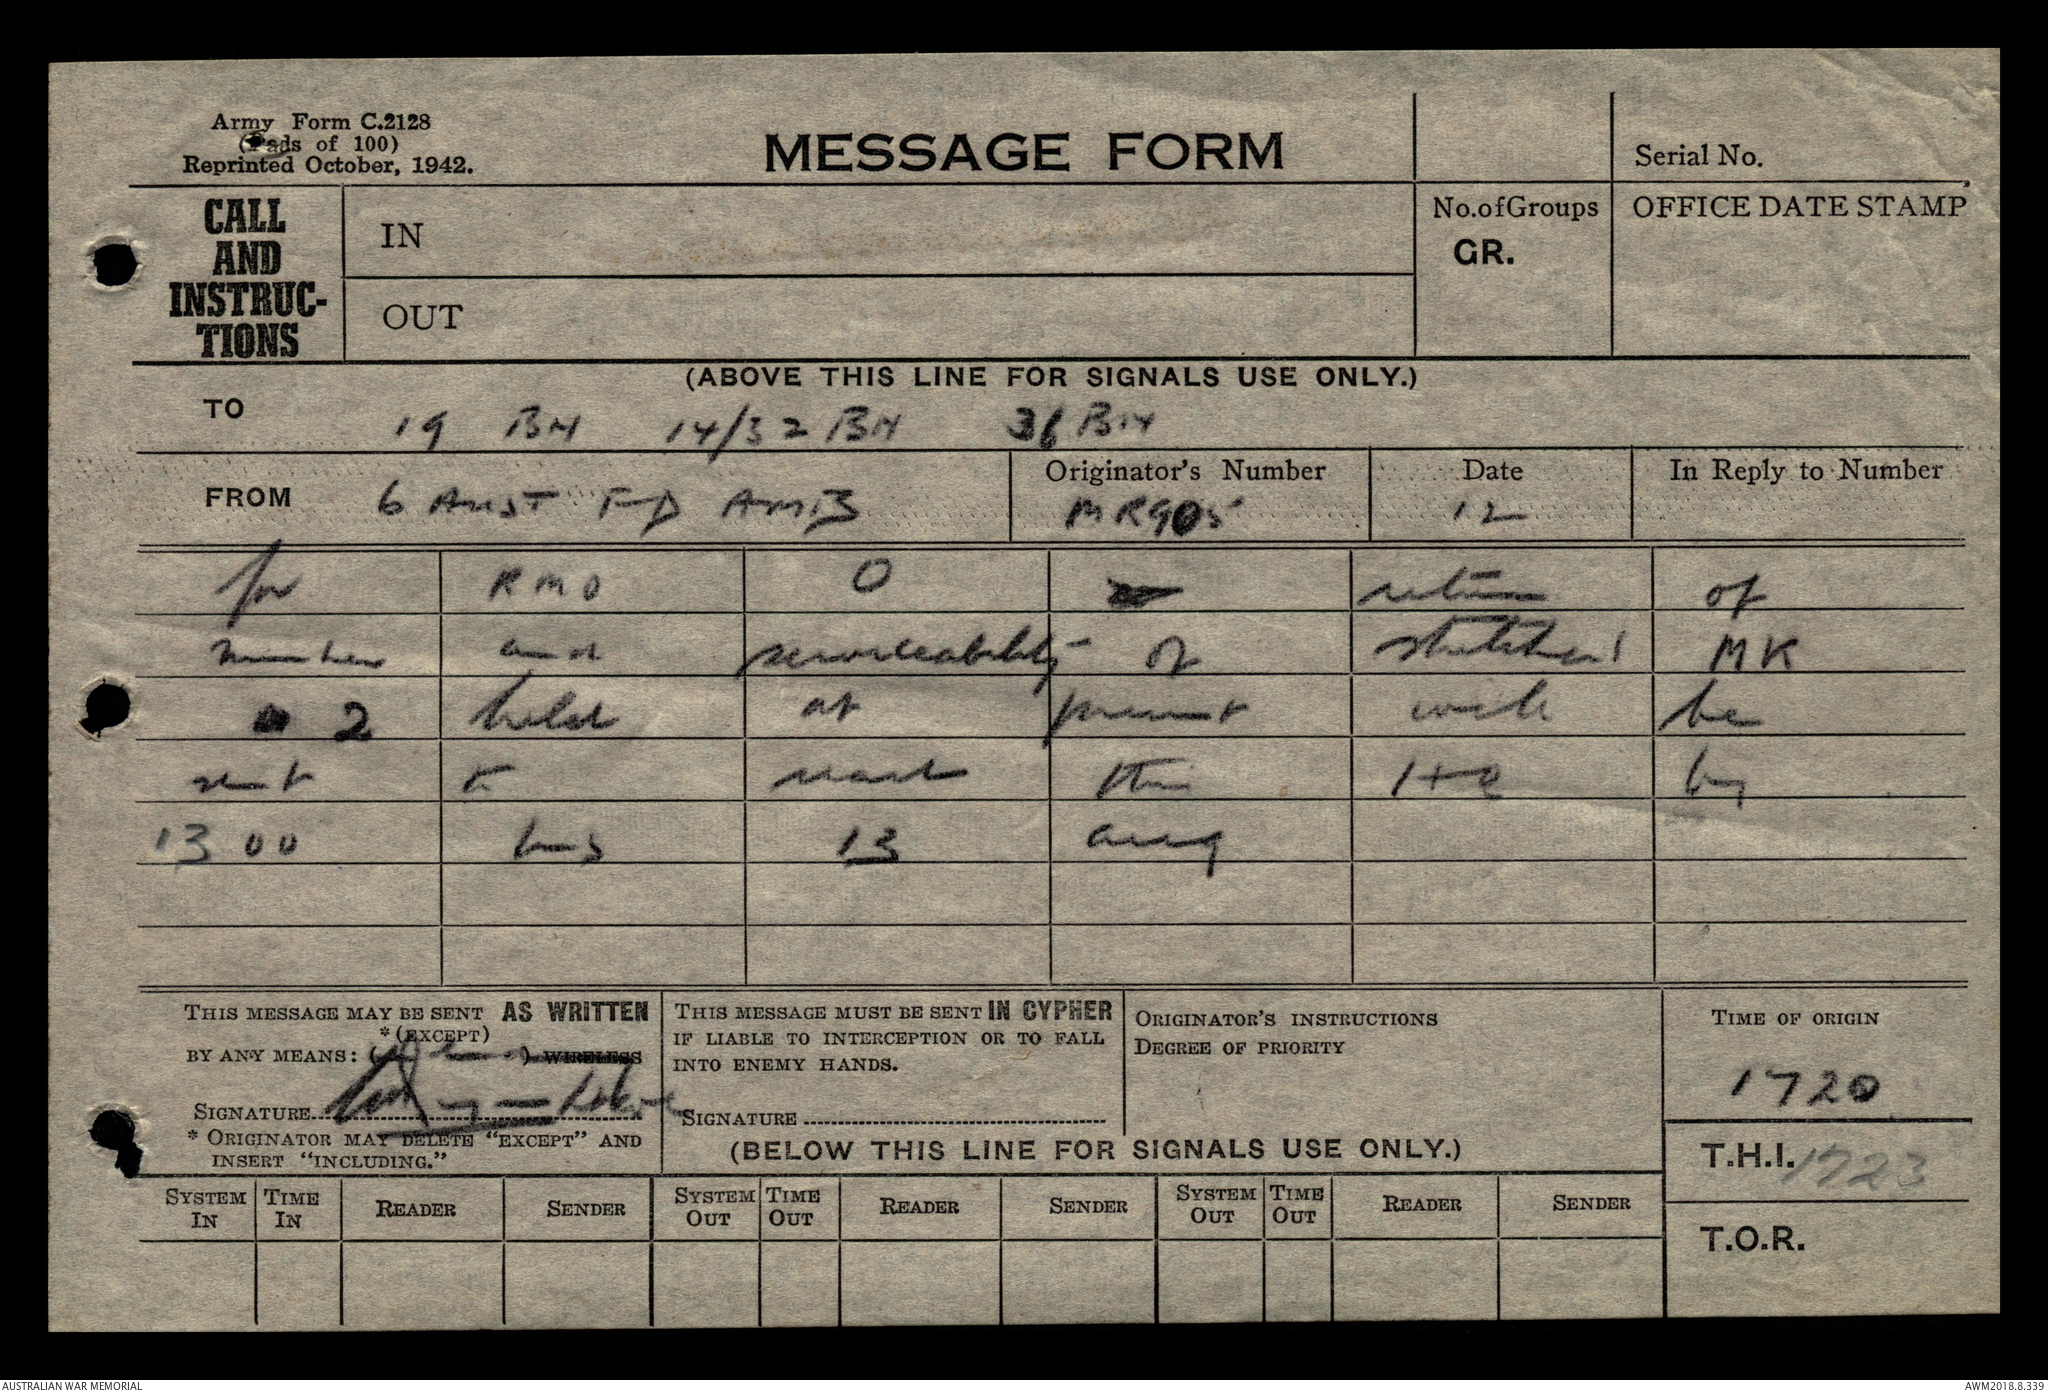 Army Form C.2128
(Pads of 100)
Reprinted October, 1942.
MESSAGE FORM
Serial No.
CALL
AND
INSTRUC-
TIONS
IN
OUT
No.of Groups
GR.
OFFICE DATE STAMP
(ABOVE THIS LINE FOR SIGNALS USE ONLY.)
TO 19 BN 14/32 BN 36 BN
FROM 6 AUST FD AMB
Originator's Number
MR905
Date
12
In Reply to Number
for RMO O return of
number and serviceability of stretchers MK
2 held at present will be
sent to reach this HQ by
1300 hrs 13 aug
THIS MESSAGE MAY BE SENT AS WRITTEN
*(EXCEPT)
BY ANY MEANS: ( ) WIRELESS
SIGNATURE
* ORIGINATOR MAY DELETE "EXCEPT" AND
INSERT "INCLUDING."
THIS MESSAGE MUST BE SENT IN CYPHER
IF LIABLE TO INTERCEPTION OR TO FALL
INTO ENEMY HANDS.
SIGNATURE
ORIGINATOR'S INSTRUCTIONS
DEGREE OF PRIORITY
TIME OF ORIGIN
1720
(BELOW THIS LINE FOR SIGNALS USE ONLY.)
T.H.I. 1723
T.O.R.
SYSTEM IN TIME IN READER SENDER SYSTEM OUT TIME OUT READER SENDER SYSTEM OUT TIME OUT READER SENDER
AUSTRALIAN WAR MEMORIAL
AWM2018.8.339